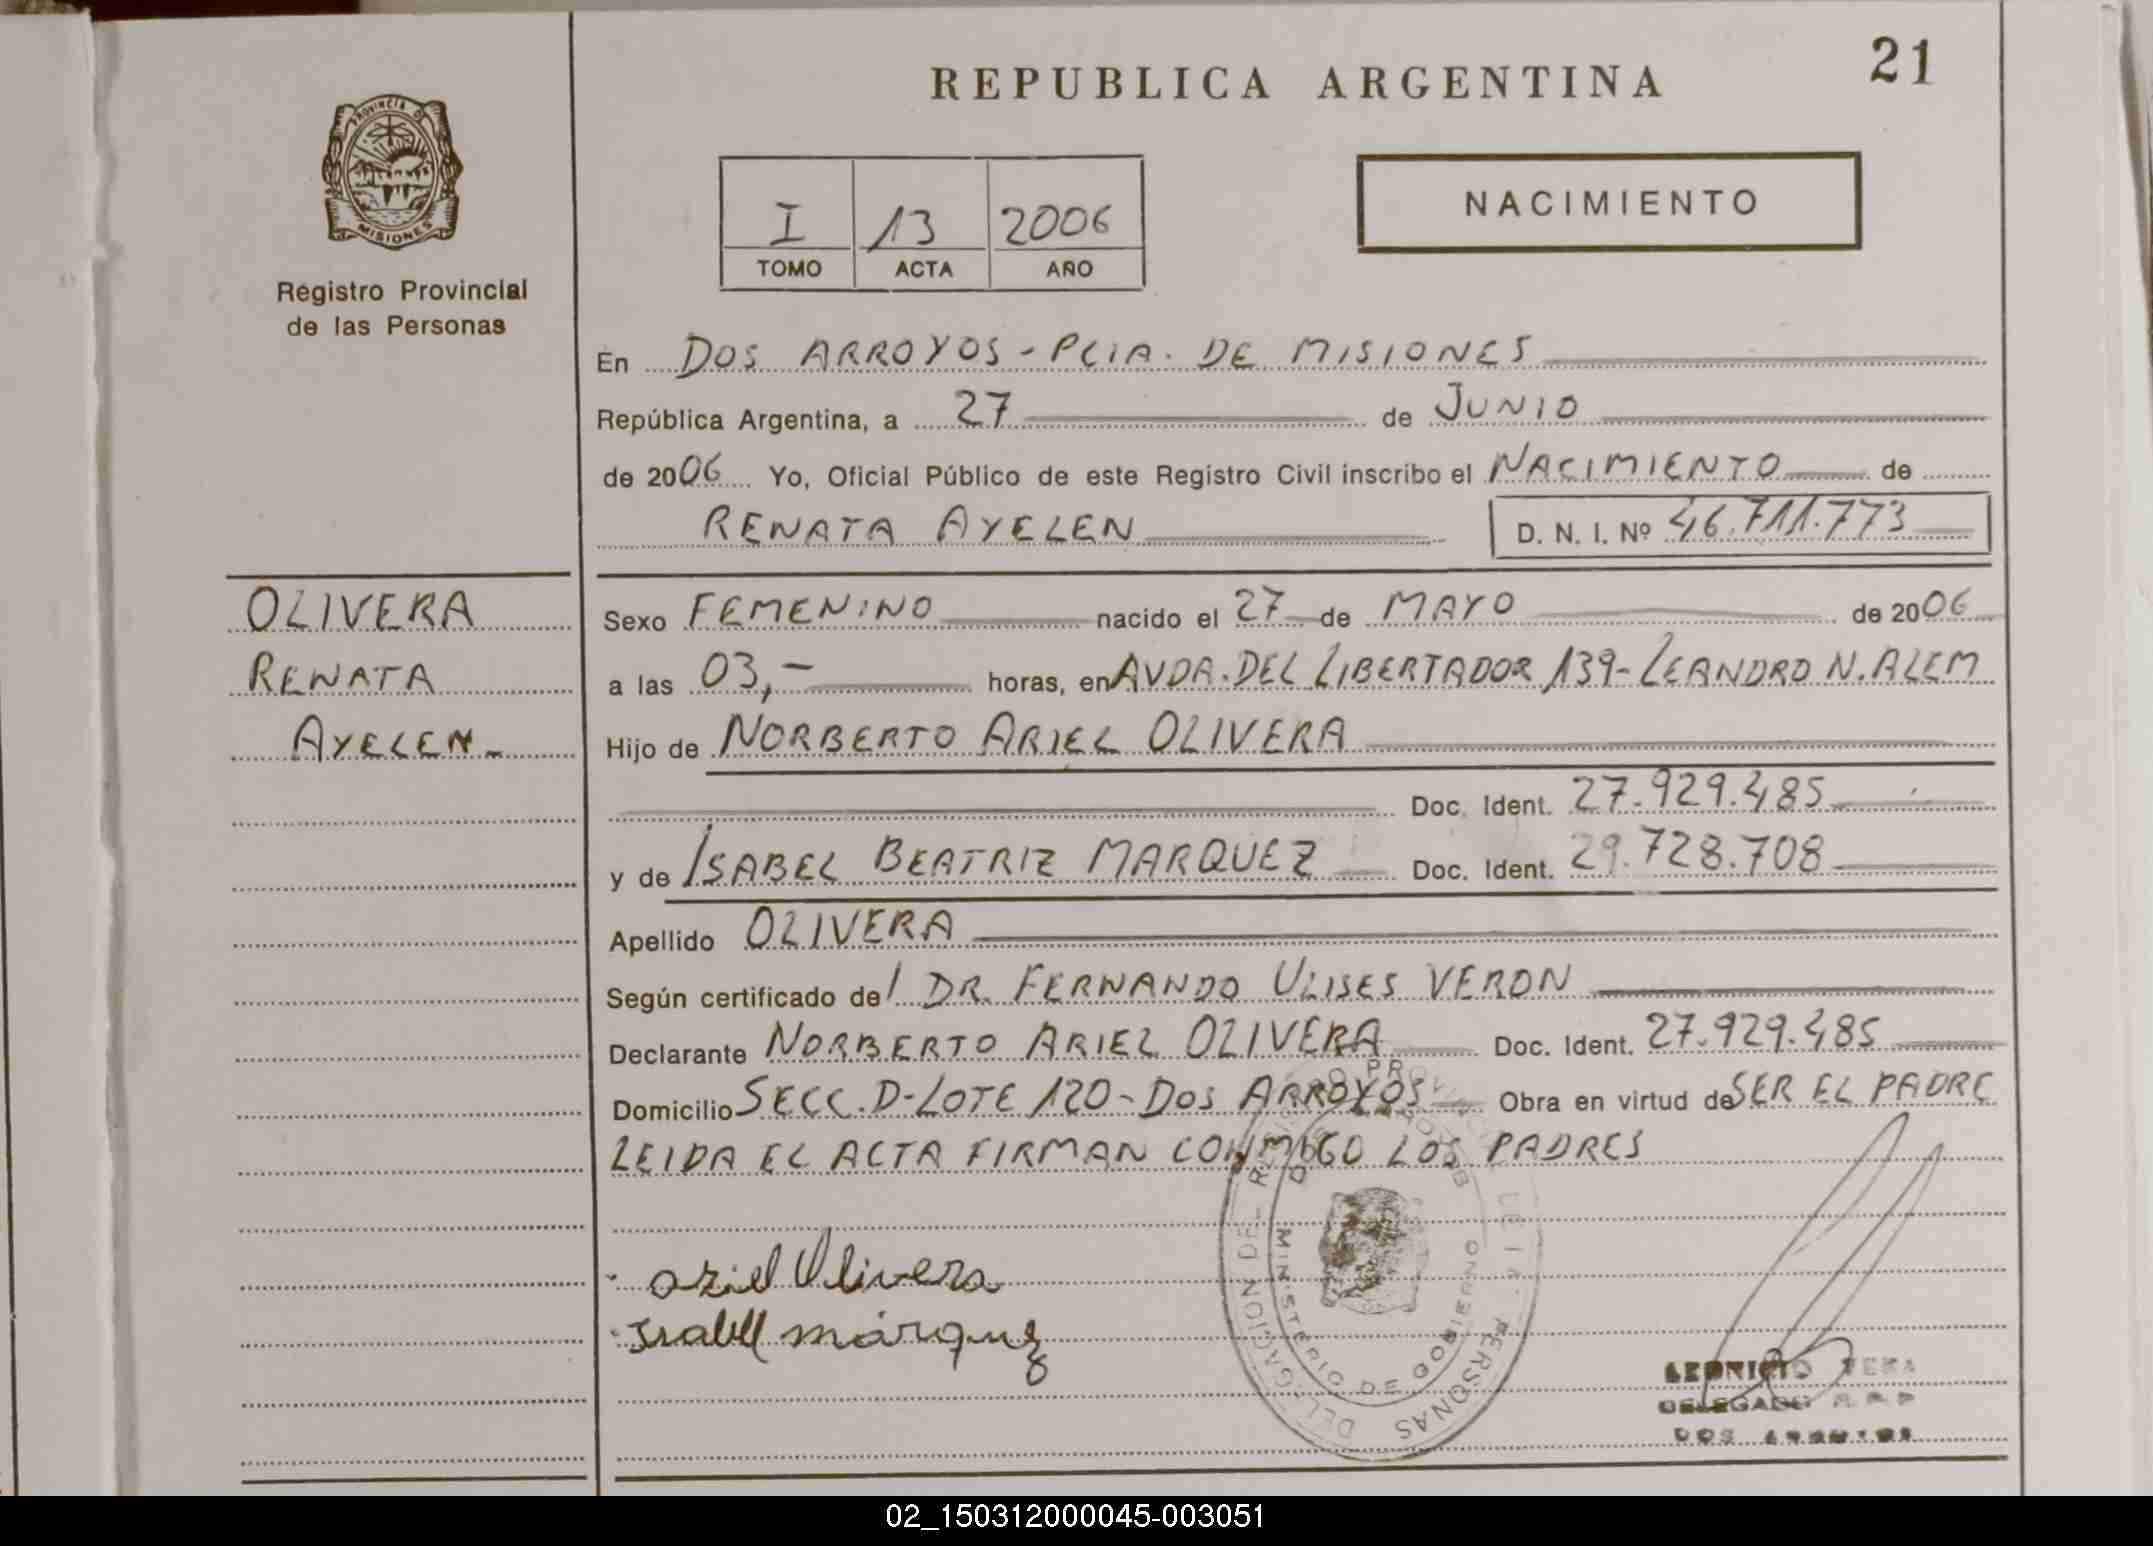 21
REPUBLICA ARGENTINA
PROVINCIA DE
MISIONES
Registro Provincial
de las Personas
NACIMIENTO
I 13 2006
TOMO ACTA AÑO
En DOS ARROYOS - PCIA. DE MISIONES
República Argentina, a 27 de JUNIO
de 2006 Yo, Oficial Público de este Registro Civil inscribo el NACIMIENTO de
RENATA AYELEN D. N. I. Nº 46.711.773
OLIVERA
RENATA
AYELEN-
Sexo FEMENINO nacido el 27 de MAYO de 2006
a las 03,- horas, en AVDA. DEL LIBERTADOR 139- LEANDRO N. ALEM
Hijo de NORBERTO ARIEL OLIVERA
Doc. Ident. 27.929.485
y de ISABEL BEATRIZ MARQUEZ Doc. Ident. 29.728.708
Apellido OLIVERA
Según certificado del DR. FERNANDO ULISES VERON
Declarante NORBERTO ARIEL OLIVERA Doc. Ident. 27.929.485
Domicilio SECC. D-LOTE 120- DOS ARROYOS Obra en virtud de SER EL PADRE
LEIDA EL ACTA FIRMAN CONMIGO LOS PADRES
ariel Olivera
Isabel márquez
MINISTERIO DE GOBIERNO
PERSONAS
DELEGADO
DOS ARROYOS
02_150312000045-003051